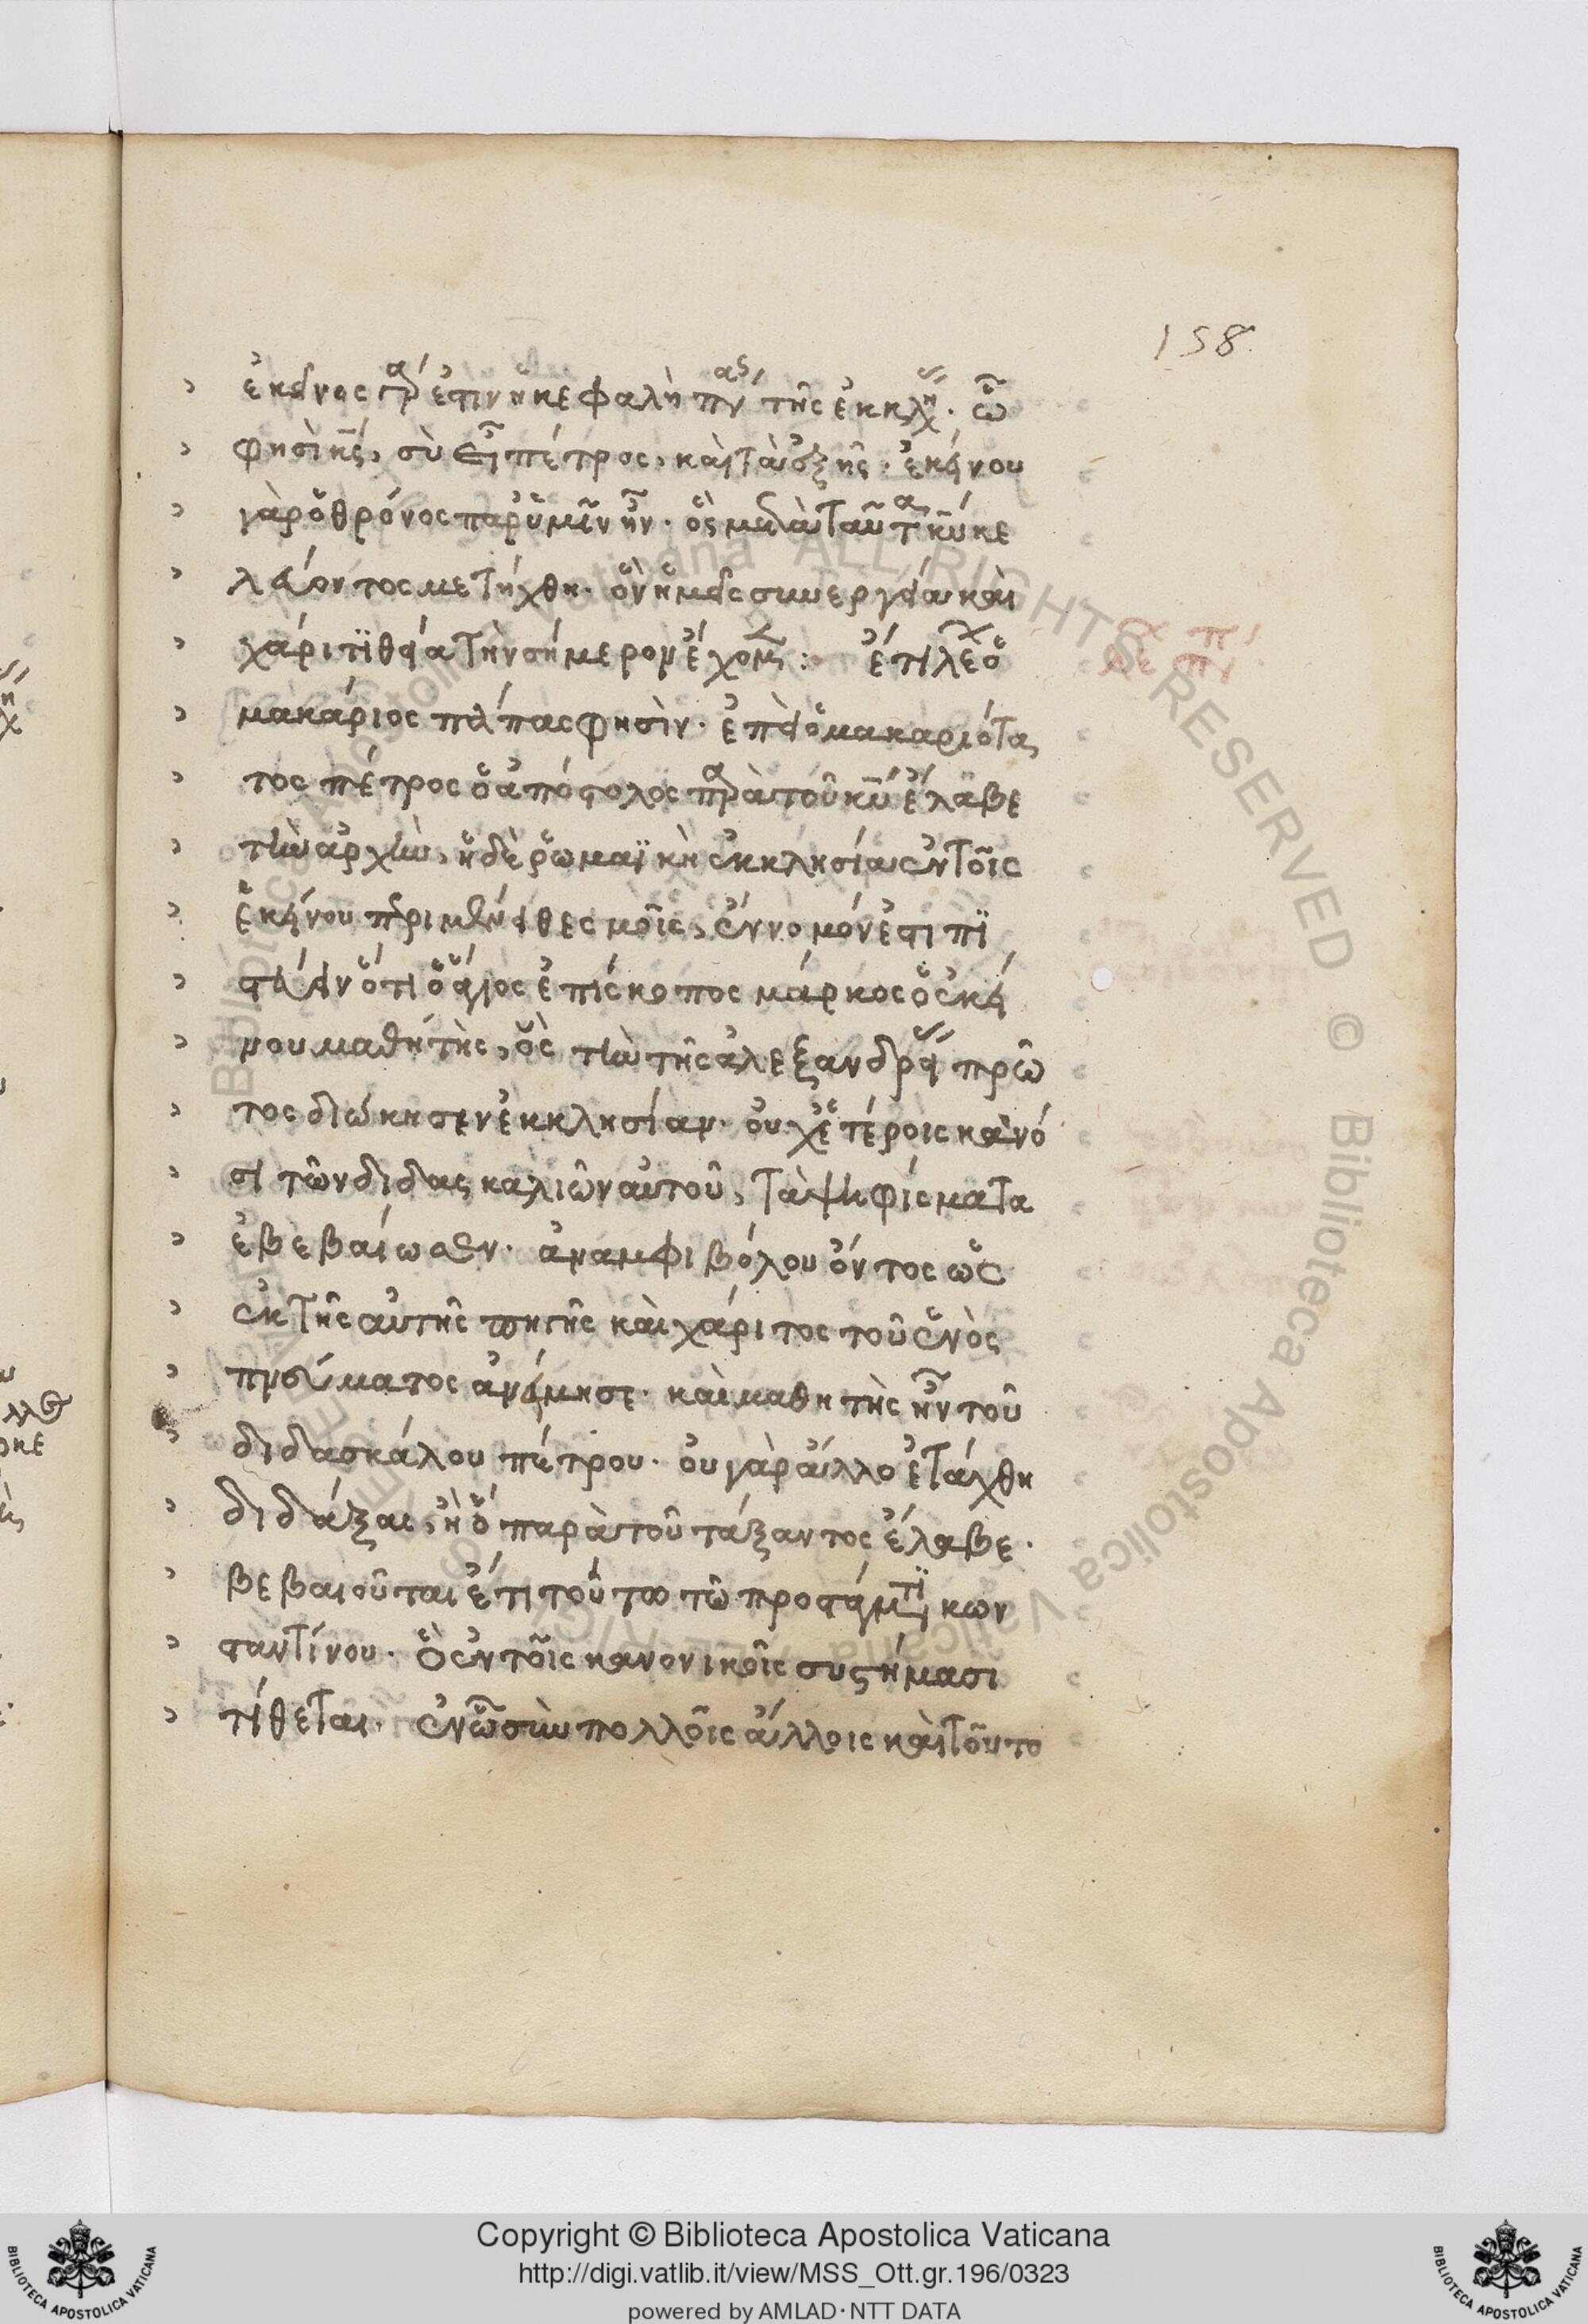 158.
ἐκεῖνος πρ ἐστιν ἡ κεφαλὴ πν τῆς ἐκκλη. ὧ
φησὶ κς, σὺ εἶ πέτρος, καὶ τὰ ἑξῆς. ἐκείνου
γὰρ ὁ θρόνος παρ ὑμῖν ἦν. ὃς μετὰ ταῦτα κυ κε
λεύοντος μετήχθη. ὃν ἡμεῖς συνεργεία καὶ
χάριτι θεία τὴν σήμερον ἔχομ : ἔτι λεο
μακάριος πάπας φησίν. ἐπεὶ ὁ μακαριότα
τος πέτρος ὁ ἀπόστολος παρὰ τοῦ κυ ἔλαβε
τὴν ἀρχὴν, ἡ δὲ ῥωμαϊκὴ ἐκκλησία ἐν τοῖς
ἐκείνου περιμένει θεσμοῖς, ἔννομόν ἐστι πι
στεύειν ὅτι ὁ ἅγιος ἐπίσκοπος μάρκος ὁ ἐκεί
νου μαθητὴς, ὃς τὴν τῆς ἀλεξανδρεί πρῶ
τος διώκησεν ἐκκλησίαν. οὐχ ἑτέροις κανό
σι τῶν διδασκαλιῶν αὐτοῦ, τὰ ψηφίσματα
ἐβεβαίωσεν. ἀναμφιβόλου ὄντος ὡς
ἐκ τῆς αὐτῆς πηγῆς καὶ χάριτος τοῦ ἑνὸς
πνεύματος ἀνίμησε. καὶ μαθητὴς ἦν τοῦ
διδασκάλου πέτρου. οὐ γὰρ ἄλλο ἐτάχθη
διδάξαι, ἢ ὃ παρὰ τοῦ τάξαντος ἔλαβε.
βεβαιοῦται ἔτι τοῦτο τῶ προστάγματι κων
σταντίνου. ὃ ἐν τοῖς κανονικοῖς συστήμασι
τίθεται. ἐν ὧ σὺν πολλοῖς ἄλλοις καὶ τοῦτο
Copyright © Biblioteca Apostolica Vaticana
http://digi.vatlib.it/view/MSS_Ott.gr.196/0323
powered by AMLAD·NTT DATA